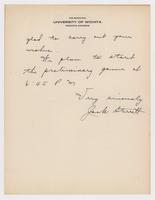 UNIVERSITY OF WICHITA
glad to carry out your
wishes.
We plan to start
the preliminary game at
6:45 P.M.
Very sincerely
Jack Sterrett